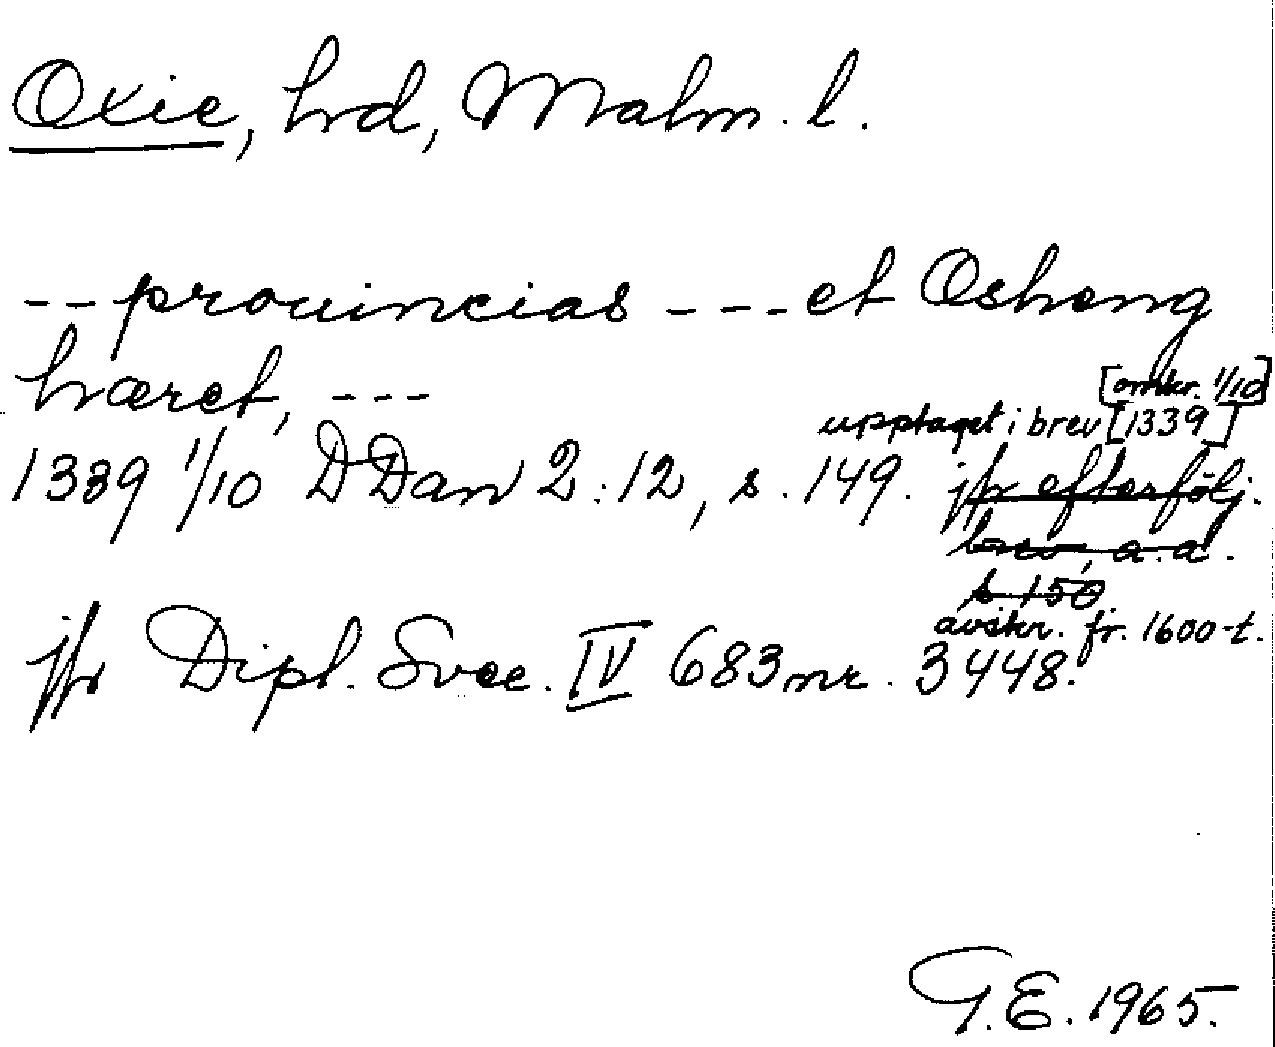 Oxie, hrd, Malm. l.
-- prouincias --- et Osheng
hæret, ---
[omkr. 1/10]
upptaget i brev [1339]
1339 1/10 DDan 2:12, s. 149. jfr efterfölj.
brev, a.a.
s. 150
avskr. fr. 1600-t.
jfr Dipl. Svec. IV 683 nr. 3448.
G.E. 1965.